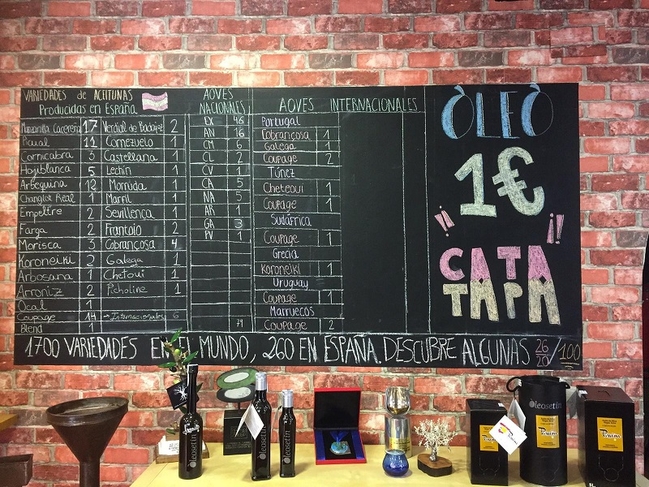 VARIEDADES de ACEITUNAS
Producidas en España
Manzanilla Cacereña 17
Picual 11
Cornicabra 3
Hojiblanca 5
Arbequina 12
Changlot Real 1
Empeltre 2
Farga 2
Morisca 3
Koroneiki 2
Arbosana 1
Arroniz 2
Ocal 1
Coupage 14
Blend 1
Verdial de Badajoz 2
Cornezuelo 1
Castellana 1
Lechin 1
Morruda 1
Marfil 1
Sevillenca 1
Frantoio 2
Cobrançosa 4
Galega 1
Chetoui 1
Picholine 1
Internacionales
AOVES
NACIONALES
EX 48
AN 16
CM 6
CL 2
CV 1
CA 5
NA 5
AR 1
GA 3
PV 1
AOVES INTERNACIONALES
Portugal
Cobrançosa 1
Galega 1
Coupage 2
Túnez
Chetoui 1
Coupage 1
Sudáfrica
Coupage 1
Grecia
Koroneiki 1
Uruguay
Coupage 1
Marruecos
Coupage 2
ÒLEÒ
1€
¡¡ !!
CATA
TAPA
1700 VARIEDADES EN EL MUNDO, 260 EN ESPAÑA. DESCUBRE ALGUNAS 26/100
Oleosetin
Oleosetin
Oleosetin
Oleosetin